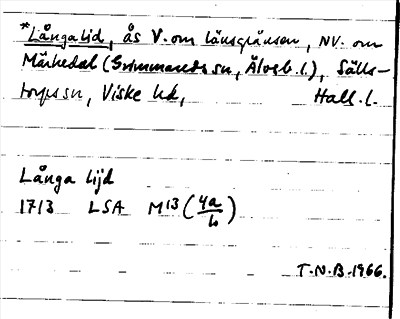 *Långalid, ås V. om länsgränsen, NV. om
Märkedal (Grimmareds sn, Älvsb. l.), Sälls-
torps sn, Viske hd, Hall. l.
Långa lijd
1713 LSA M13 (4a/b)
T.N.B. 1966.